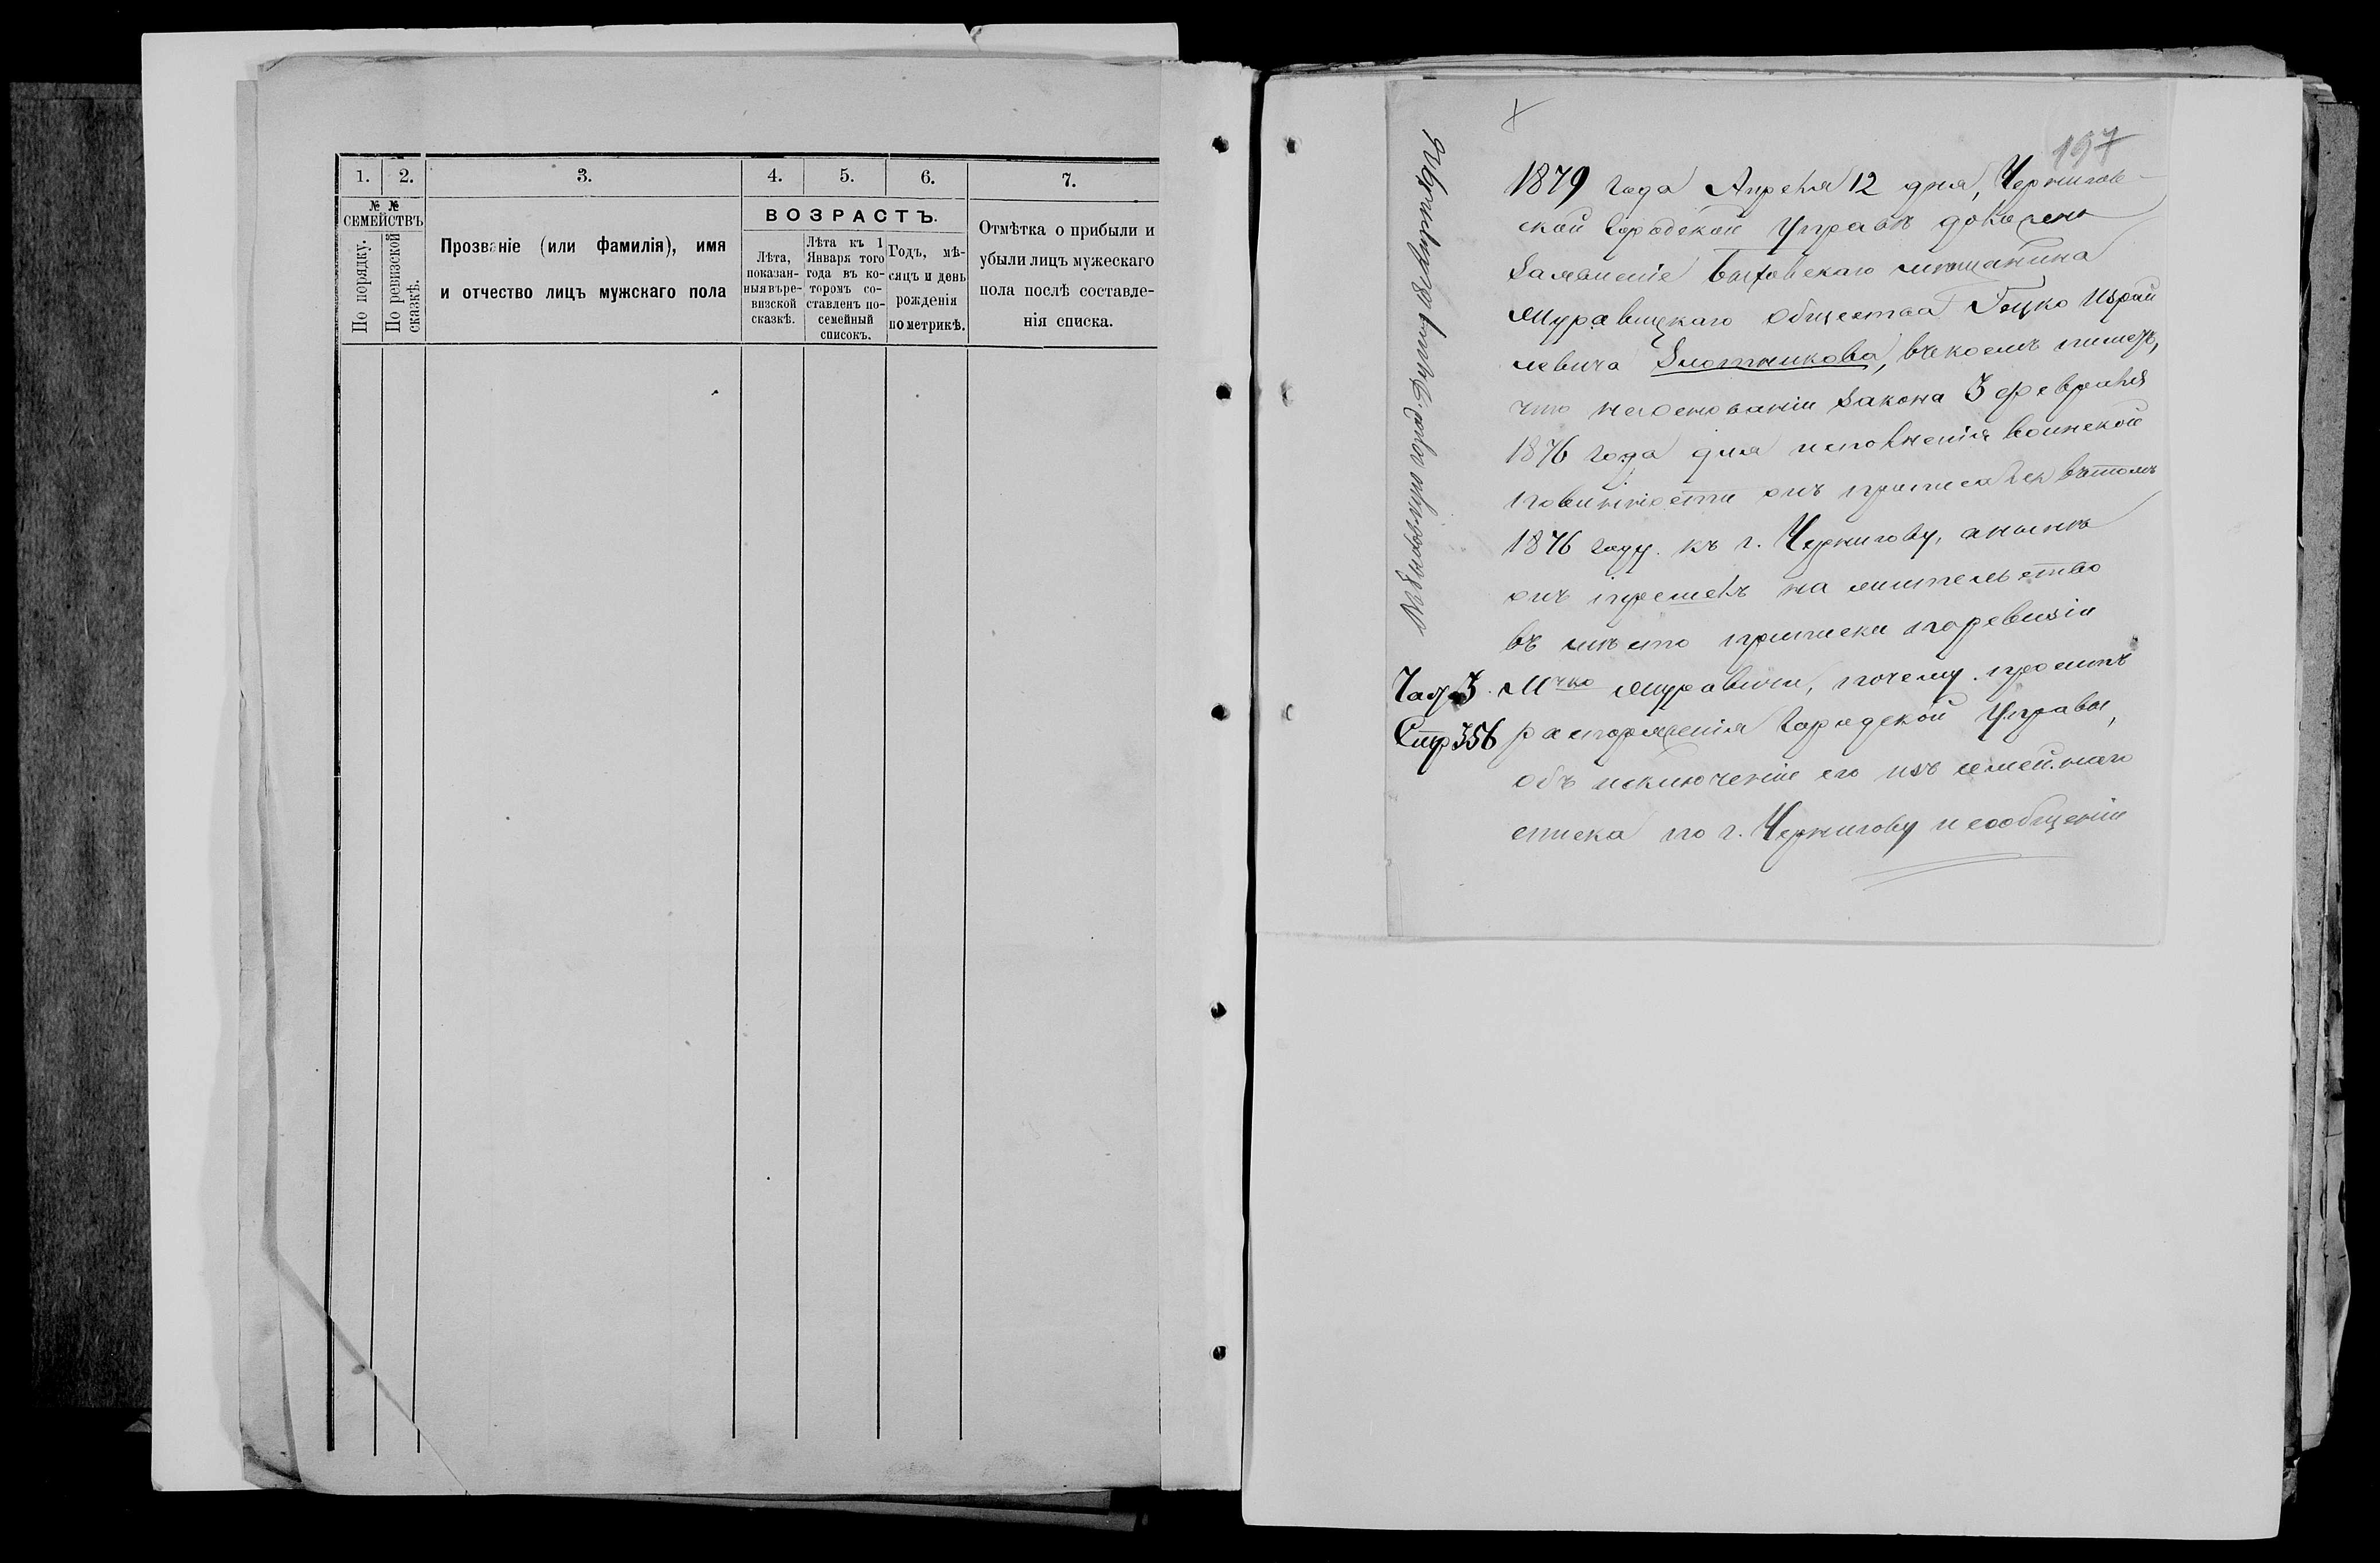 1.
2.
3.
4.
5.
6.
7.
№ №
СЕМЕЙСТВЪ
По порядку.
По ревизской
сказкѣ.
Прозваніе (или фамилія), имя
и отчество лицъ мужскаго пола
ВОЗРАСТЪ.
Лѣта,
показан-
ныя въ ре-
визской
сказкѣ.
Лѣта къ 1
Января того
года въ ко-
торомъ со-
ставленъ по-
семейный
списокъ.
Годъ, мѣ-
сяцъ и день
рожденія
по метрикѣ.
Отмѣтка о прибыли и
убыли лицъ мужескаго
пола послѣ составле-
нія списка.
197
1879 года Апреля 12 дня, Чернигов-
ской Городской Управѣ доложено
заявленіе Быховскаго мѣщанина
Журавицкаго общества Гецко Израи
левича Злотникова, въ коемъ пишетъ,
что на основаніи закона 3 февраля
1876 года для исполненія воинской
повинности онъ приписался въ томъ
1876 году къ г. Чернигову, а нынѣ
онъ на жительство
въ мѣсто приписки по ревизіи
Мчко Журавичи, почему проситъ
распоряженія Городской Управы,
объ исключеніи его изъ семейнаго
списка по г. Чернигову и сообщеніи
Стр 356